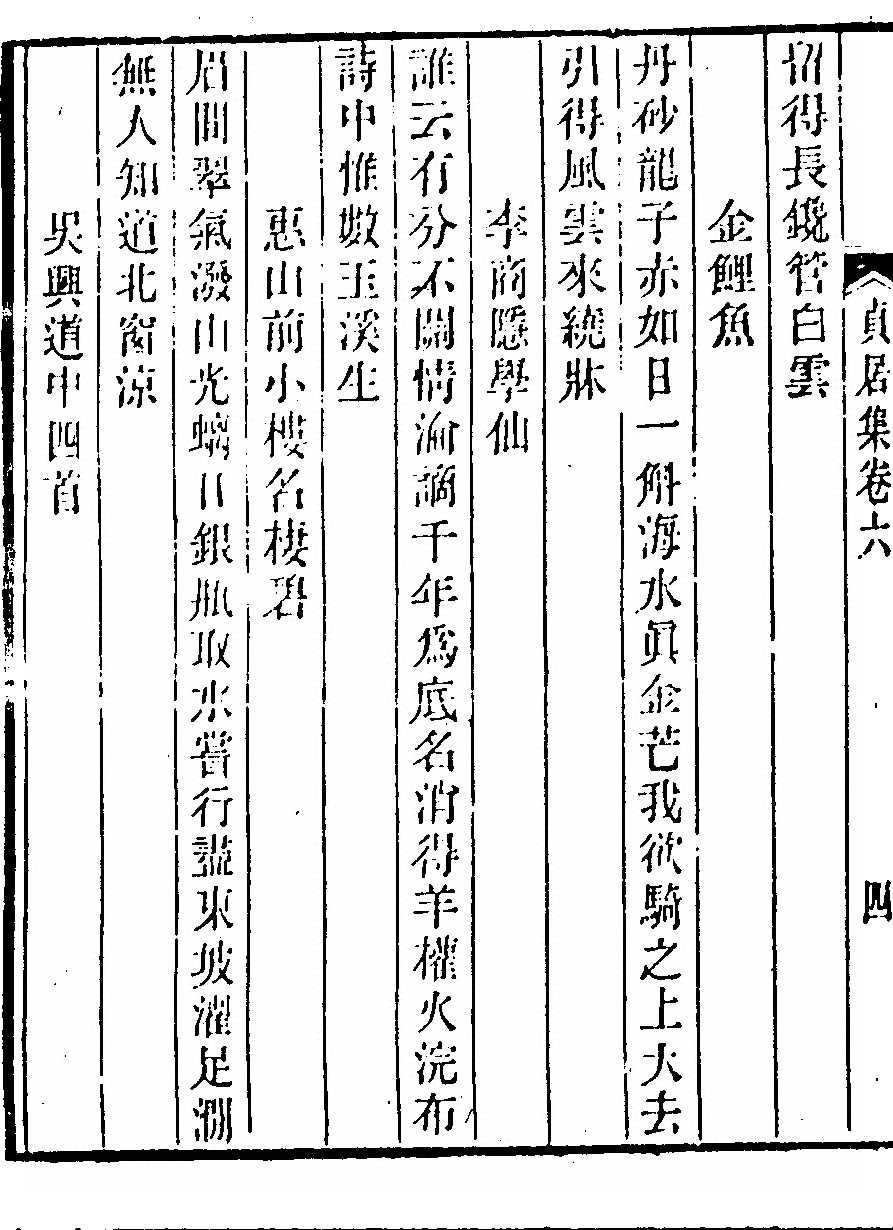 貞居集卷六
四
留得長鑱管白雲
金鯉魚
丹砂龍子赤如日一斛海水眞金芒我欲騎之上天去
引得風雲來繞牀
李商隱學仙
誰云有分不關情淪謫千年爲底名消得羊權火浣布
詩中惟數玉溪生
惠山前小樓名棲碧
眉間翠氣潑山光螭口銀瓶取水嘗行盡東坡濯足澗
無人知道北窗涼
吳興道中四首